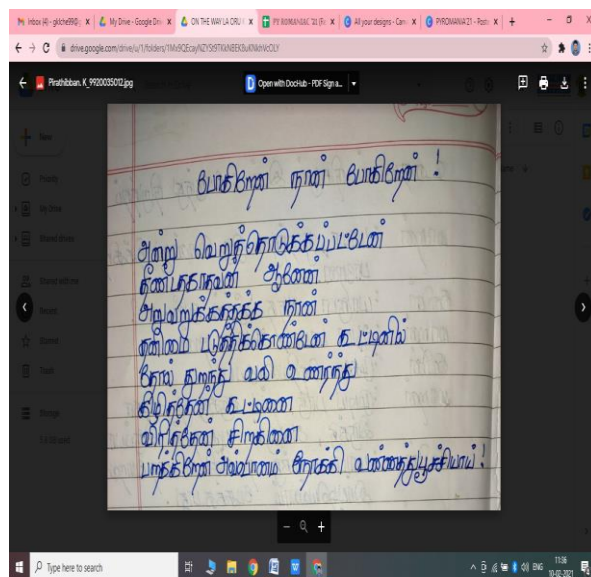 Inbox (4) - gkiche99@
My Drive - Google Dri
ON THE WAY LA ORU
PYROMANIAC '21 (Re
All your designs - Can
PYROMANIA'21 - Post
drive.google.com/drive/u/1/folders/
Pirathibban. K_9920035012.jpg
Open with DocHub - PDF Sign a...
New
Priority
My Drive
Shared drives
Shared with me
Recent
Starred
Trash
Storage
போகிறேன் நான் போகிறேன் !
அன்று வெறுத்தொடுக்கப்பட்டேன்
தீண்டதகாதவன் ஆனேன்
அறுவறுக்கத்தக்க நான்
தனிமை படுத்திக்கொண்டேன் கூட்டினில்
தோல் துறந்து வலி உணர்ந்து
கிழித்தேன் கூட்டினை
விரித்தேன் சிறகினை
பறக்கிறேன் அவ்வானம் நோக்கி வண்ணத்துபூச்சியாய் !
Type here to search
ENG
11:36
10-02-2021